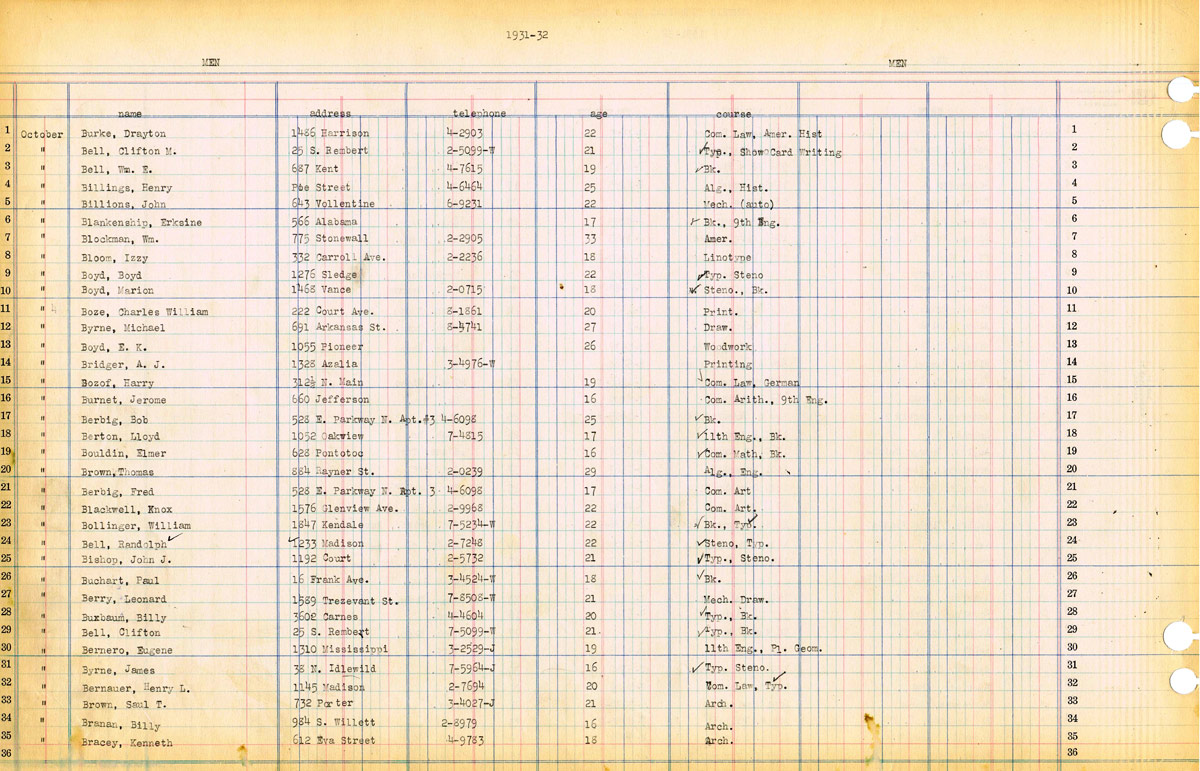 1931-32
MEN MEN
name address telephone age course
1 October Burke, Drayton 1486 Harrison 4-2903 22 Com. Law, Amer. Hist 1
2 " Bell, Clifton M. 25 S. Rembert 2-5099-W 21 ✓Typ., Show Card Writing 2
3 " Bell, Wm. E. 687 Kent 4-7615 19 ✓Bk. 3
4 " Billings, Henry Poe Street 4-6464 25 Alg., Hist. 4
5 " Billions, John 643 Vollentine 6-9231 22 Mech. (auto) 5
6 " Blankenship, Erksine 566 Alabama 17 ✓Bk., 9th Eng. 6
7 " Blockman, Wm. 775 Stonewall 2-2905 33 Amer. 7
8 " Bloom, Izzy 332 Carroll Ave. 2-2236 18 Linotype 8
9 " Boyd, Boyd 1276 Sledge 22 ✓Typ. Steno 9
10 " Boyd, Marion 1468 Vance 2-0715 18 ✓Steno., Bk. 10
11 " Boze, Charles William 222 Court Ave. 8-1861 20 Print. 11
12 " Byrne, Michael 691 Arkansas St. 8-4741 27 Draw. 12
13 " Boyd, E. K. 1055 Pioneer 26 Woodwork 13
14 " Bridger, A. J. 1328 Azalia 3-4976-W Printing 14
15 " Bozof, Harry 312½ N. Main 19 ✓Com. Law, German 15
16 " Burnet, Jerome 660 Jefferson 16 Com. Arith., 9th Eng. 16
17 " Berbig, Bob 528 E. Parkway N. Apt.#3 4-6098 25 ✓Bk. 17
18 " Berton, Lloyd 1052 Oakview 7-4815 17 ✓11th Eng., Bk. 18
19 " Bouldin, Elmer 628 Pontotoc 16 ✓Com. Math, Bk. 19
20 " Brown,Thomas 884 Rayner St. 2-0239 29 Alg., Eng. 20
21 " Berbig, Fred 528 E. Parkway N. Apt. 3 4-6098 17 Com. Art 21
22 " Blackwell, Knox 1576 Glenview Ave. 2-9968 22 Com. Art. 22
23 " Bollinger, William 1847 Kendale 7-5234-W 22 ✓Bk., Typ.✓ 23
24 " Bell, Randolph✓ ✓1233 Madison 2-7248 22 ✓Steno, Typ. 24
25 " Bishop, John J. 1192 Court 2-5732 21 ✓Typ., Steno. 25
26 " Buchart, Paul 16 Frank Ave. 3-4524-W 18 ✓Bk. 26
27 " Berry, Leonard 1589 Trezevant St. 7-8508-W 21 Mech. Draw. 27
28 " Buxbaum, Billy 3602 Carnes 4-4604 20 ✓Typ., Bk. 28
29 " Bell, Clifton 25 S. Rembert 7-5099-W 21 ✓Typ., Bk. 29
30 " Bernero, Eugene 1310 Mississippi 3-2529-J 19 11th Eng., Pl. Geom. 30
31 " Byrne, James 38 N. Idlewild 7-5964-J 16 ✓Typ. Steno. 31
32 " Bernauer, Henry L. 1145 Madison 2-7694 20 Com. Law, Typ.✓ 32
33 " Brown, Saul T. 732 Porter 3-4027-J 21 Arch. 33
34 " Branan, Billy 984 S. Willett 2-8979 16 Arch. 34
35 " Bracey, Kenneth 612 Eva Street 4-9783 18 Arch. 35
36 36